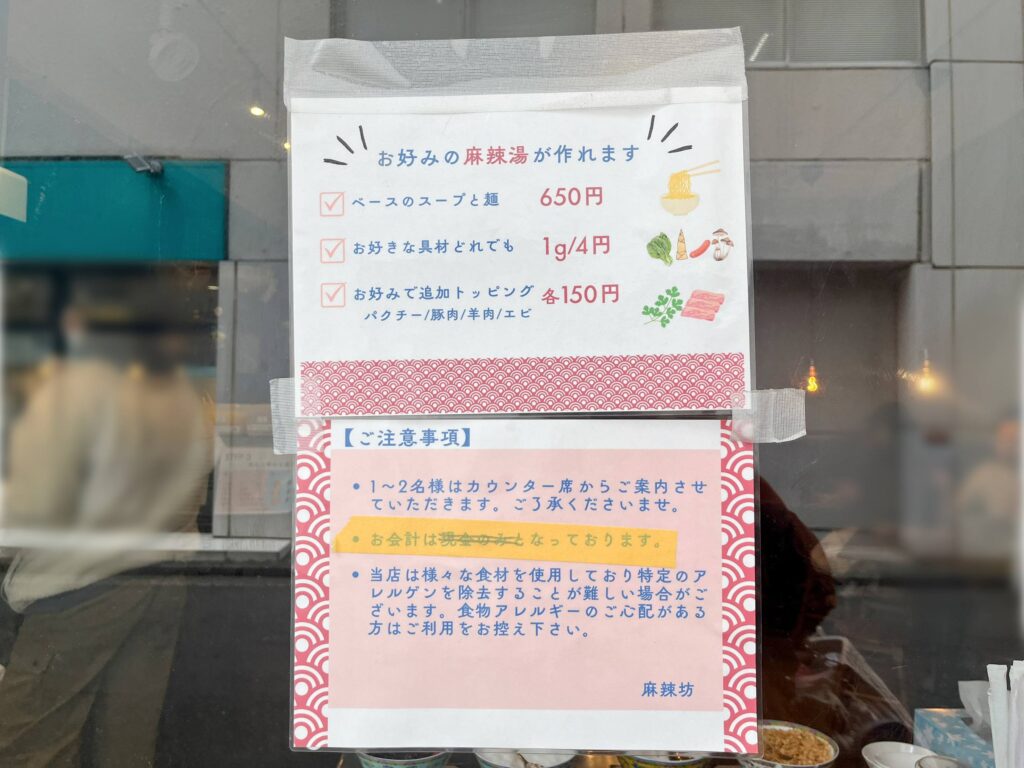 お好みの麻辣湯が作れます
ベースのスープと麺 650円
お好きな具材どれでも 1g/4円
お好みで追加トッピング 各150円
パクチー/豚肉/羊肉/エビ
【ご注意事項】
• 1～2名様はカウンター席からご案内させ
ていただきます。ご了承くださいませ。
• お会計は現金のみとなっております。
• 当店は様々な食材を使用しており特定のア
レルゲンを除去することが難しい場合がご
ざいます。食物アレルギーのご心配がある
方はご利用をお控え下さい。
麻辣坊